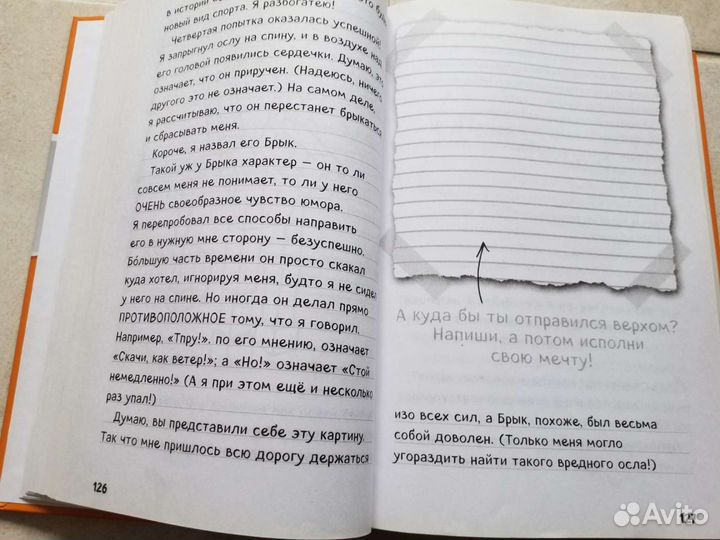 в истории
новый вид спорта. Я разбогатею!
Четвертая попытка оказалась успешной!
Я запрыгнул ослу на спину, и в воздухе над
его головой появились сердечки. Думаю, это
означает, что он приручен. (Надеюсь, ничего
другого это не означает.) На самом деле,
я рассчитываю, что он перестанет брыкаться
и сбрасывать меня.
Короче, я назвал его Брык.
Такой уж у Брыка характер — он то ли
совсем меня не понимает, то ли у него
ОЧЕНЬ своеобразное чувство юмора.
Я перепробовал все способы направить
его в нужную мне сторону — безуспешно.
Бо́льшую часть времени он просто скакал
куда хотел, игнорируя меня, будто я не сидел
у него на спине. Но иногда он делал прямо
ПРОТИВОПОЛОЖНОЕ тому, что я говорил.
Например, «Тпру!». по его мнению, означает
«Скачи, как ветер!»; а «Но!» означает «Стой
немедленно!» (А я при этом ещё и несколько
раз упал!)
Думаю, вы представили себе эту картину.
Так что мне пришлось всю дорогу держаться
126
А куда бы ты отправился верхом?
Напиши, а потом исполни
свою мечту!
изо всех сил, а Брык, похоже, был весьма
собой доволен. (Только меня могло
угораздить найти такого вредного осла!)
127
Avito